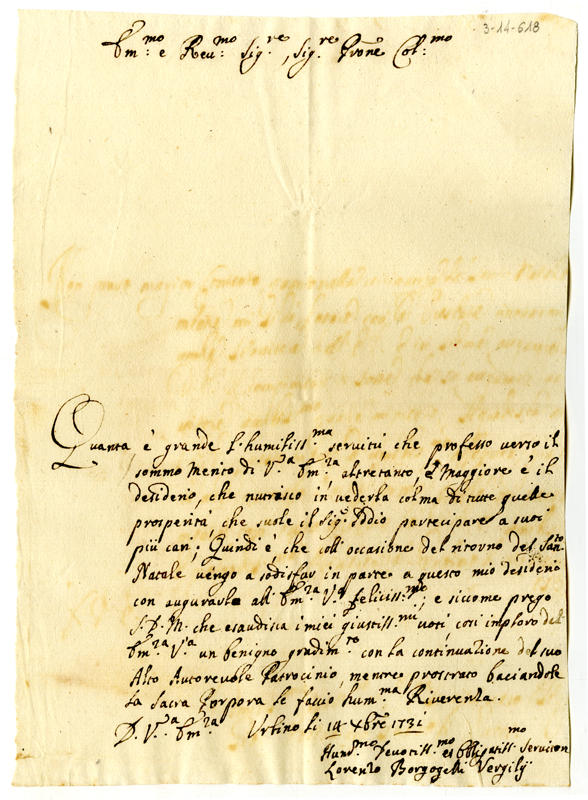 3-14-618
Em:mo e Reu:mo Sig:re, Sig:re Prone Col:mo
Quanta è grande l'humiliss:ma seruitù, che professo uerso il
sommo Merito di V:ra Em:za, altretanto, e Maggiore è il
desiderio, che nutrisco in uederla colma di tutte quelle
prosperità, che suole il Sig:e Iddio partecipare a suoi
più cari; Quindi è che coll'occasione del ritorno del San:to
Natale uengo a sodisfar in parte a questo mio desiderio
con augurarle all'Em:za V:ra feliciss:me, e siccome prego
S. D. M. che esaudisca i miei giustiss:mi uoti, così imploro dell'
Em:za V:ra un benigno gradim:to con la continuazione del suo
Alto Autoreuole Patrocinio, mentre prostrato baciandole
la Sacra Porpora le faccio hum:ma Riuerenza.
D. V:ra Em:za Urbino li 14 Xbre 1731
Hum:mo Deuotiss:mo et Obligatiss:mo Seruitore
Lorenzo Borgogelli Vergilij